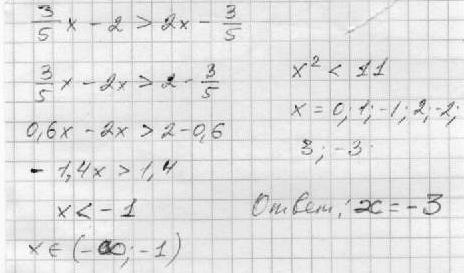 3/5 x - 2 > 2x - 3/5
3/5 x - 2x > 2 - 3/5
0,6x - 2x > 2 - 0,6
- 1,4x > 1,4
x < - 1
x ∈ (-∞; -1)
x² < 11
x = 0; 1; -1; 2; -2;
3; -3.
Ответ: x = -3